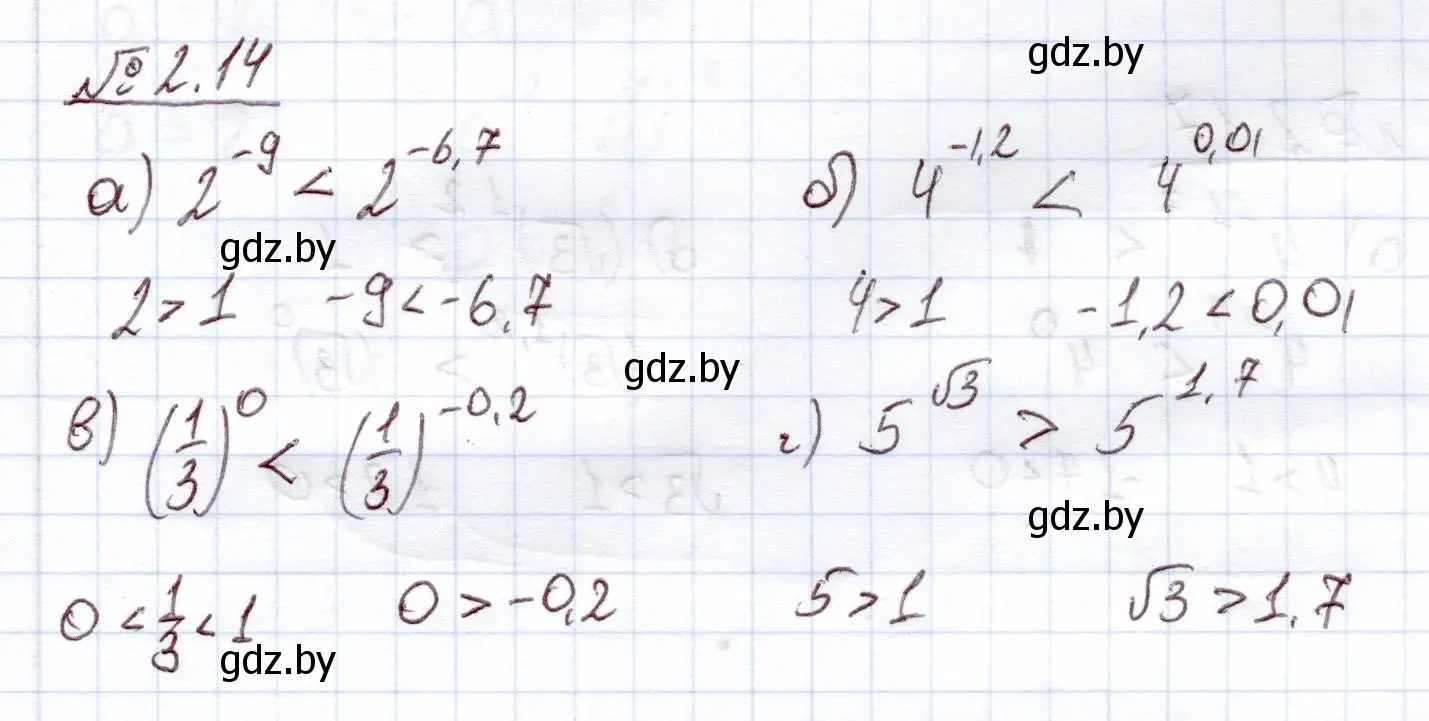 № 2.14
gdz.by
а) 2^{-9} < 2^{-6,7}
б) 4^{-1,2} < 4^{0,01}
gdz.by
2 > 1 -9 < -6,7
4 > 1 -1,2 < 0,01
gdz.by
в) (1/3)^0 < (1/3)^{-0,2}
г) 5^{√3} > 5^{1,7}
gdz.by
0 < 1/3 < 1 0 > -0,2
5 > 1 √3 > 1,7
gdz.by